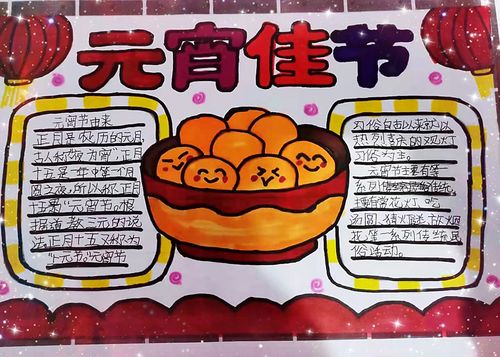 元宵佳节
元宵节由来
正月是农历的元月,
古人称"夜"为"宵"正月
十五是一年中第一个月
圆之夜,所以称正月
十五为"元宵节。根
据道教"三元"的说
法,正月十五又称为
"上元节"元宵节
习俗自古以来就以
热烈喜庆的观灯
习俗为主。
元宵节主要有等
系列
主要有赏花灯、吃
汤圆、猜灯谜、放烟
花等一系列传统民
俗活动。